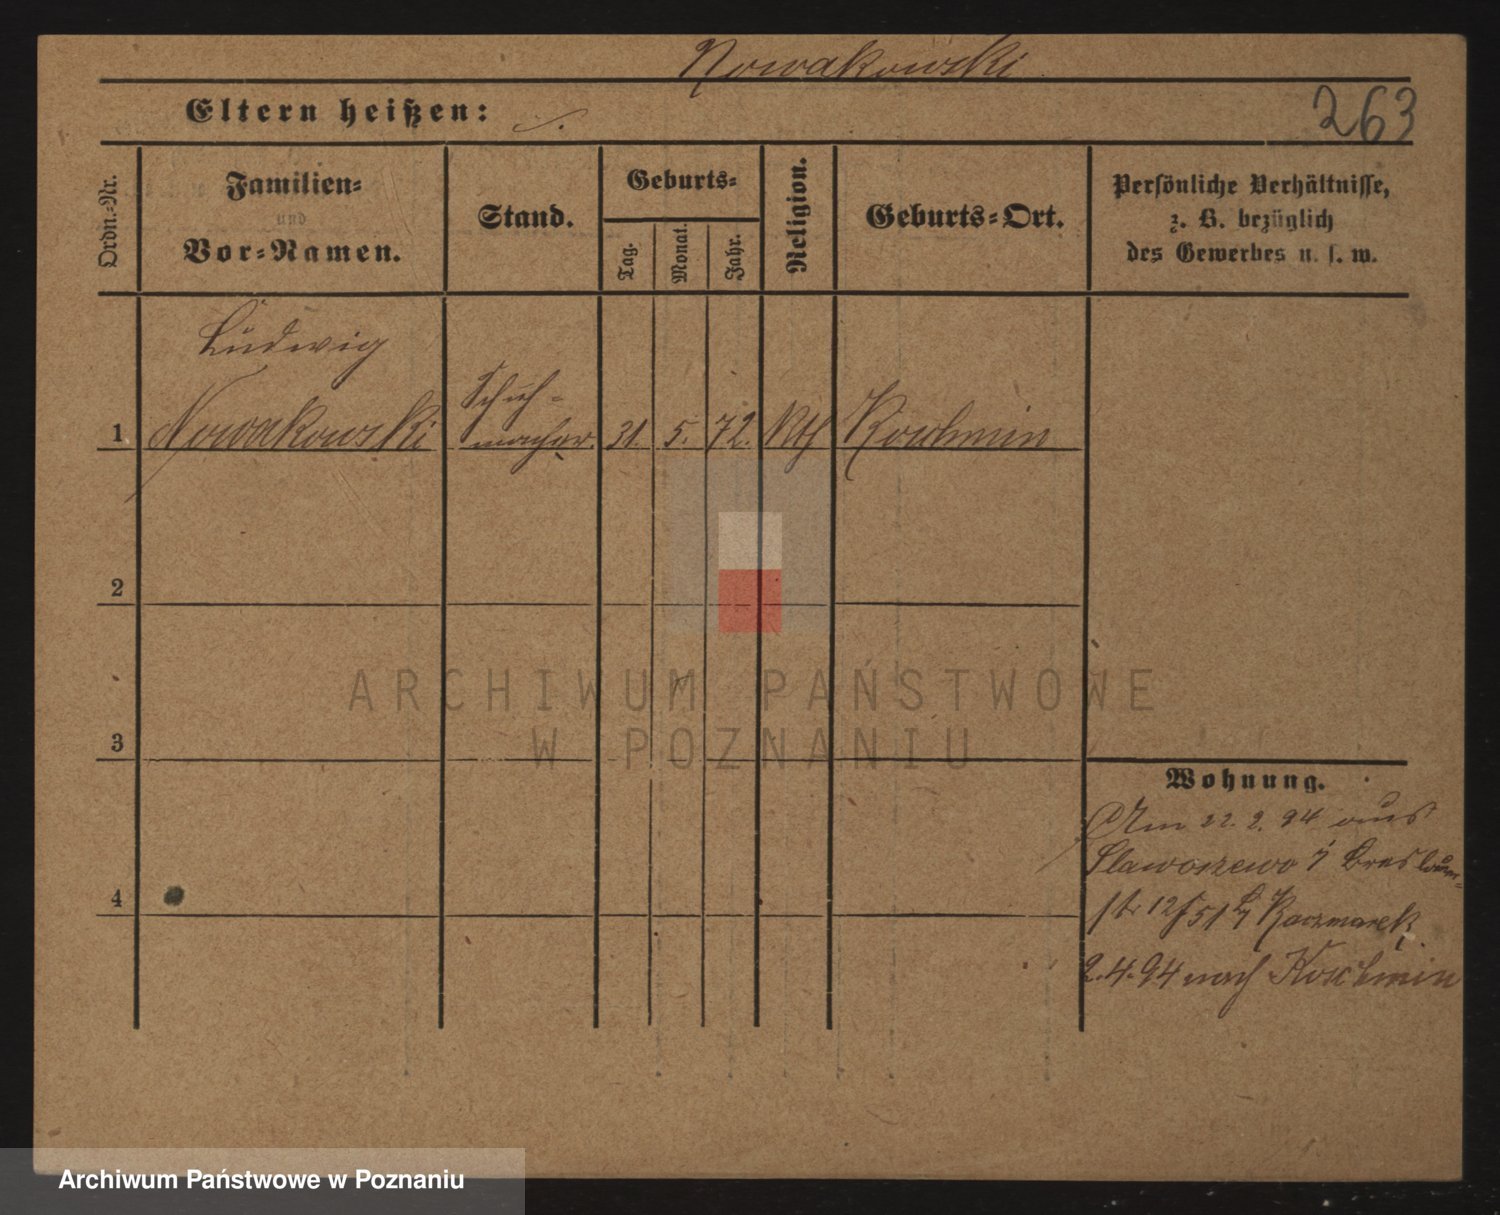 Nowakowski
Eltern heißen:
263
Ordn.-Nr.
Familien-
und
Vor-Namen.
Stand.
Geburts-
Tag.
Monat.
Jahr.
Religion.
Geburts-Ort.
Persönliche Verhältnisse,
z. B. bezüglich
des Gewerbes u. s. w.
Ludwig
Schuh-
1 Nowakowski macher. 31. 5. 72. Kth Koschmin
2
3
4
Wohnung.
Am 22. 2. 94 aus
Slawoszewo Breslauer-
str 12/51 b/ Kaczmarek
2.4.94 nach Koschmin
ARCHIWUM PAŃSTWOWE
W POZNANIU
Archiwum Państwowe w Poznaniu